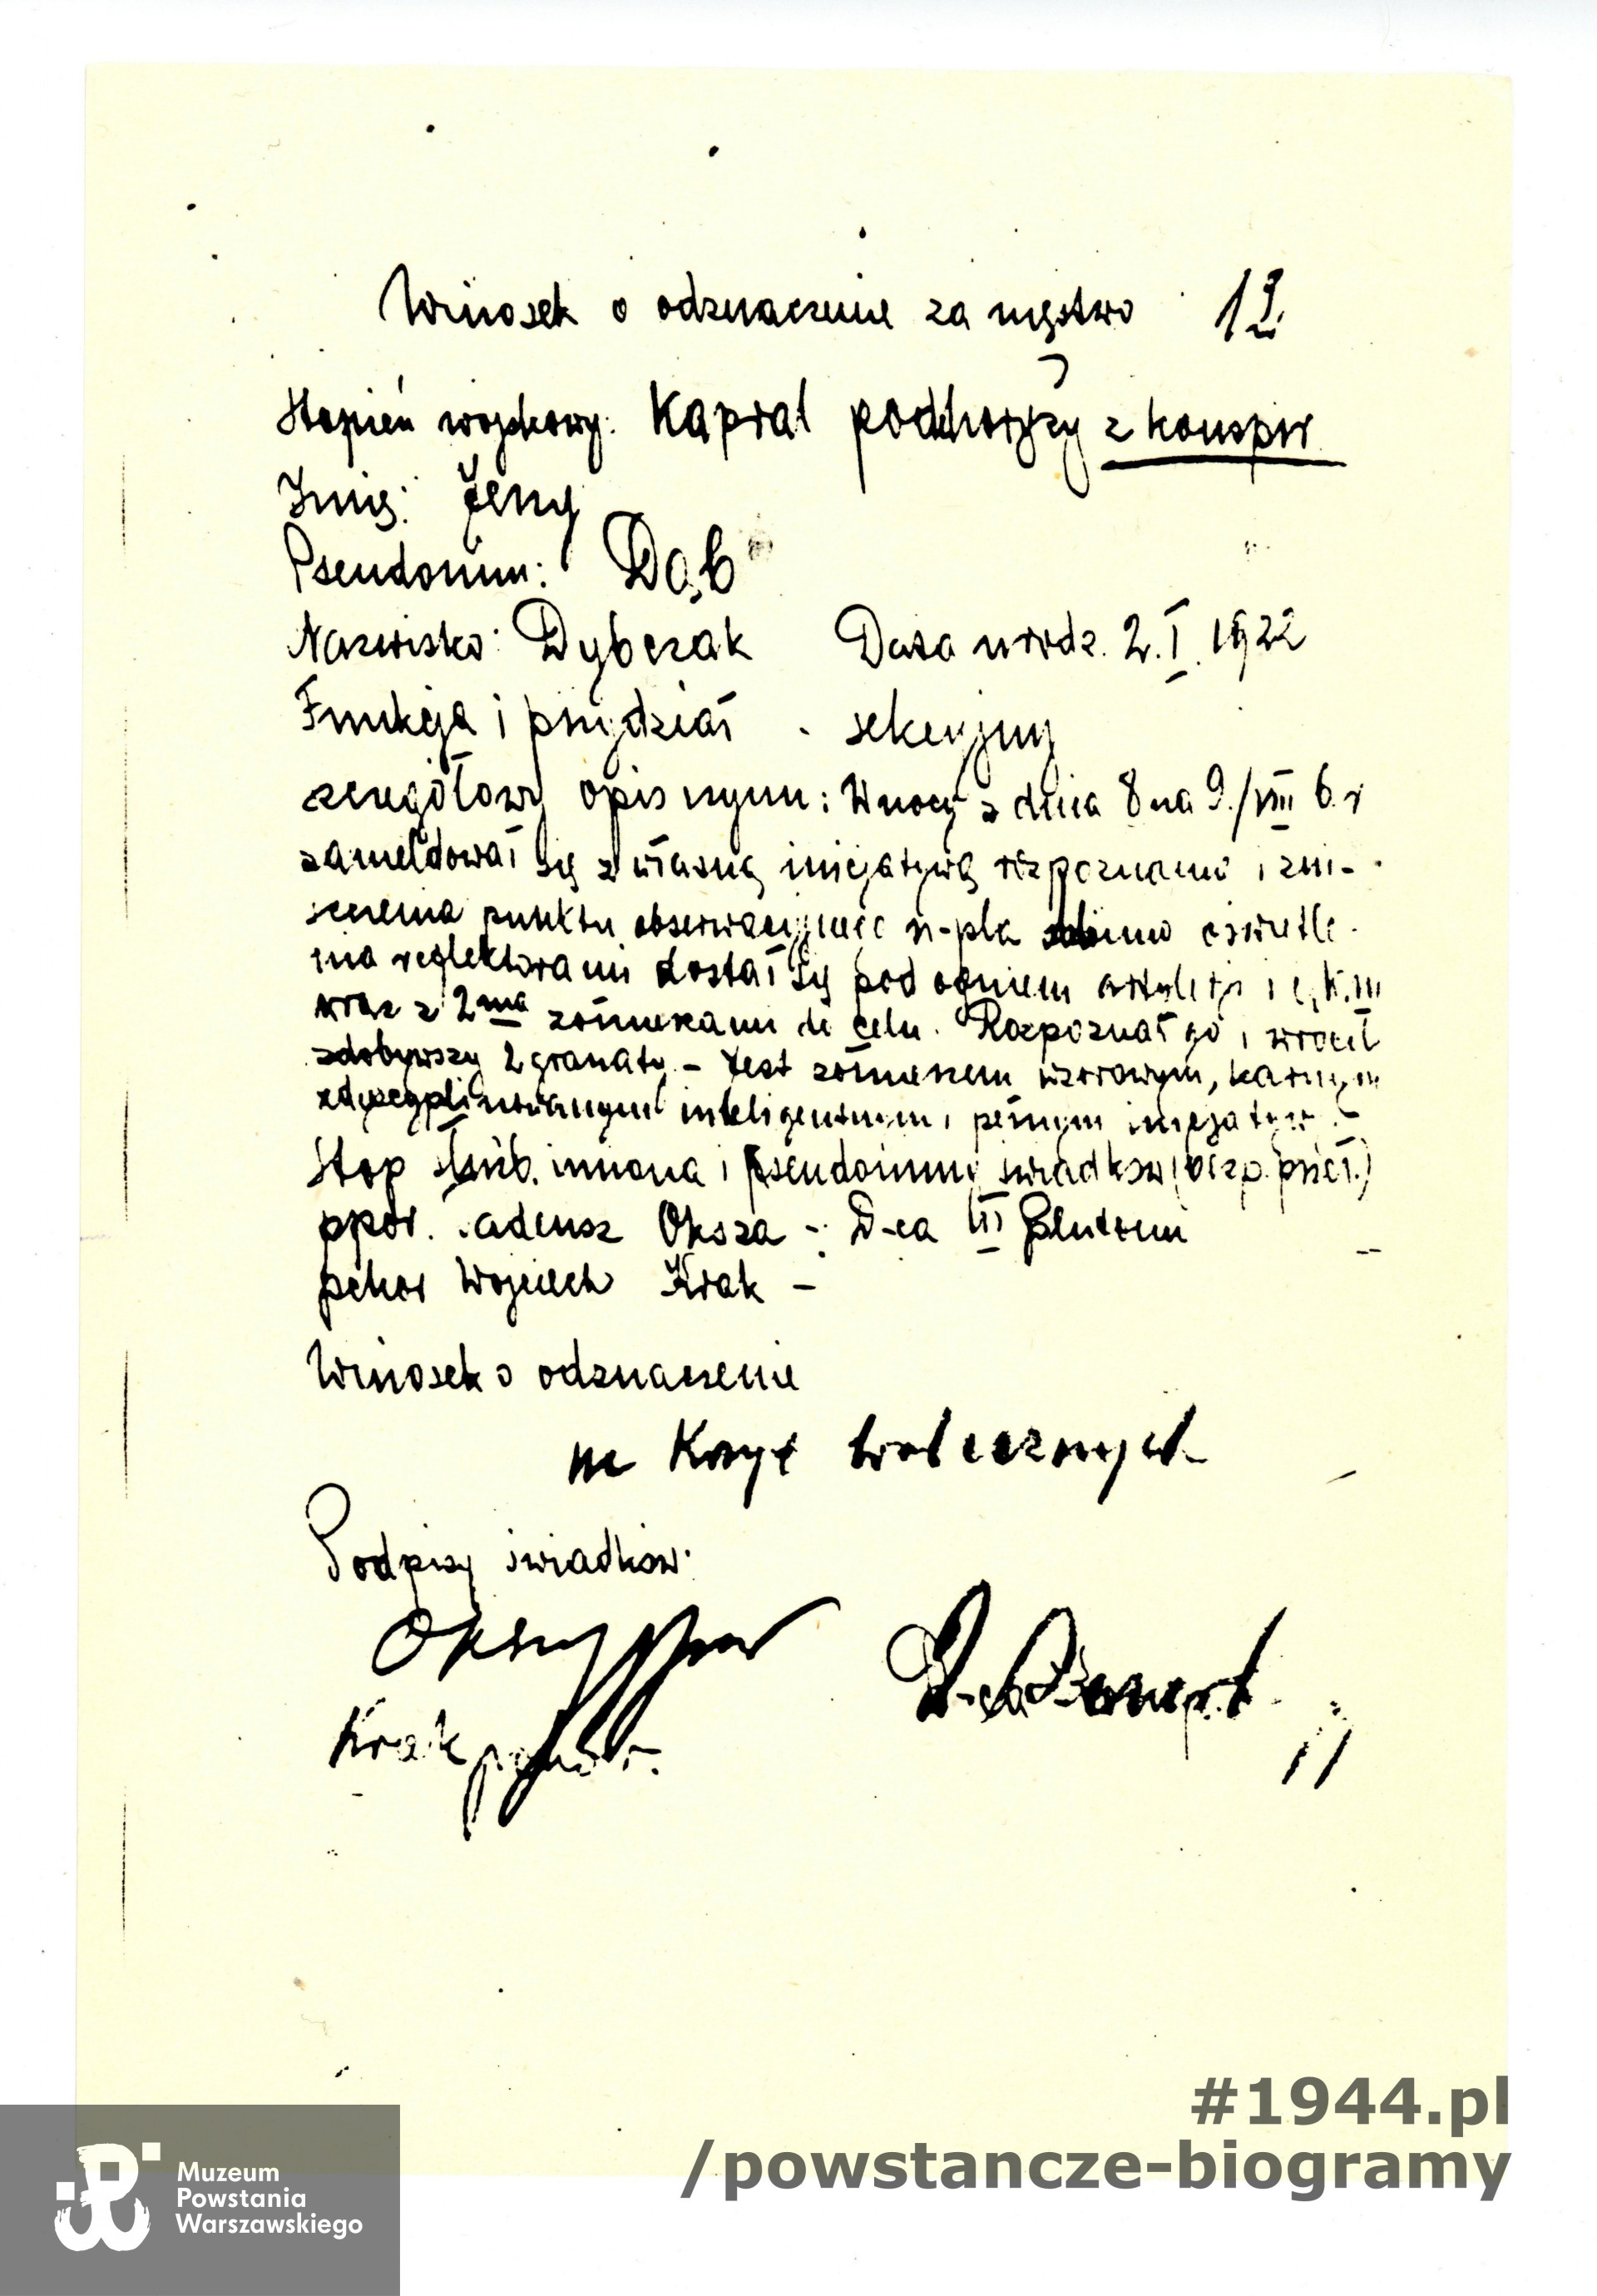 Wniosek o odznaczenie za męstwo 12
Stopień wojskowy: Kapral podchorąży z konspir.
Imię: Jerzy
Pseudonim: Dąb
Nazwisko: Dybczak Data urodz. 2.I.1922
Funkcja i przydział - sekcyjny
szczegółowy opis czynu: W nocy z dnia 8 na 9./VIII b.r
zameldował się z własną inicjatywą rozpoznania i zni-
szczenia punktu obserwacyjnego n-pla mimo oświetle-
nia reflektorami dostał się pod ogniem artylerji i c.k.m
wraz z 2ma żołnierzami do celu. Rozpoznał go i wrócił
zdobywszy 2 granaty. - Jest żołnierzem wzorowym, karnym
zdyscyplinowanym inteligentnym i pełnym inicjatyw. -
Stop służb. imiona i pseudonimy świadków (bezp. przeł.)
ppor. Tadeusz Oksza - D-ca III Plutonu
pchor Wojciech Krak -
Wniosek o odznaczenie
na Krzyż Walecznych -
Podpisy świadków:
Oksza ppor
Krak pchor.
#1944.pl
/powstancze-biogramy
Muzeum
Powstania
Warszawskiego